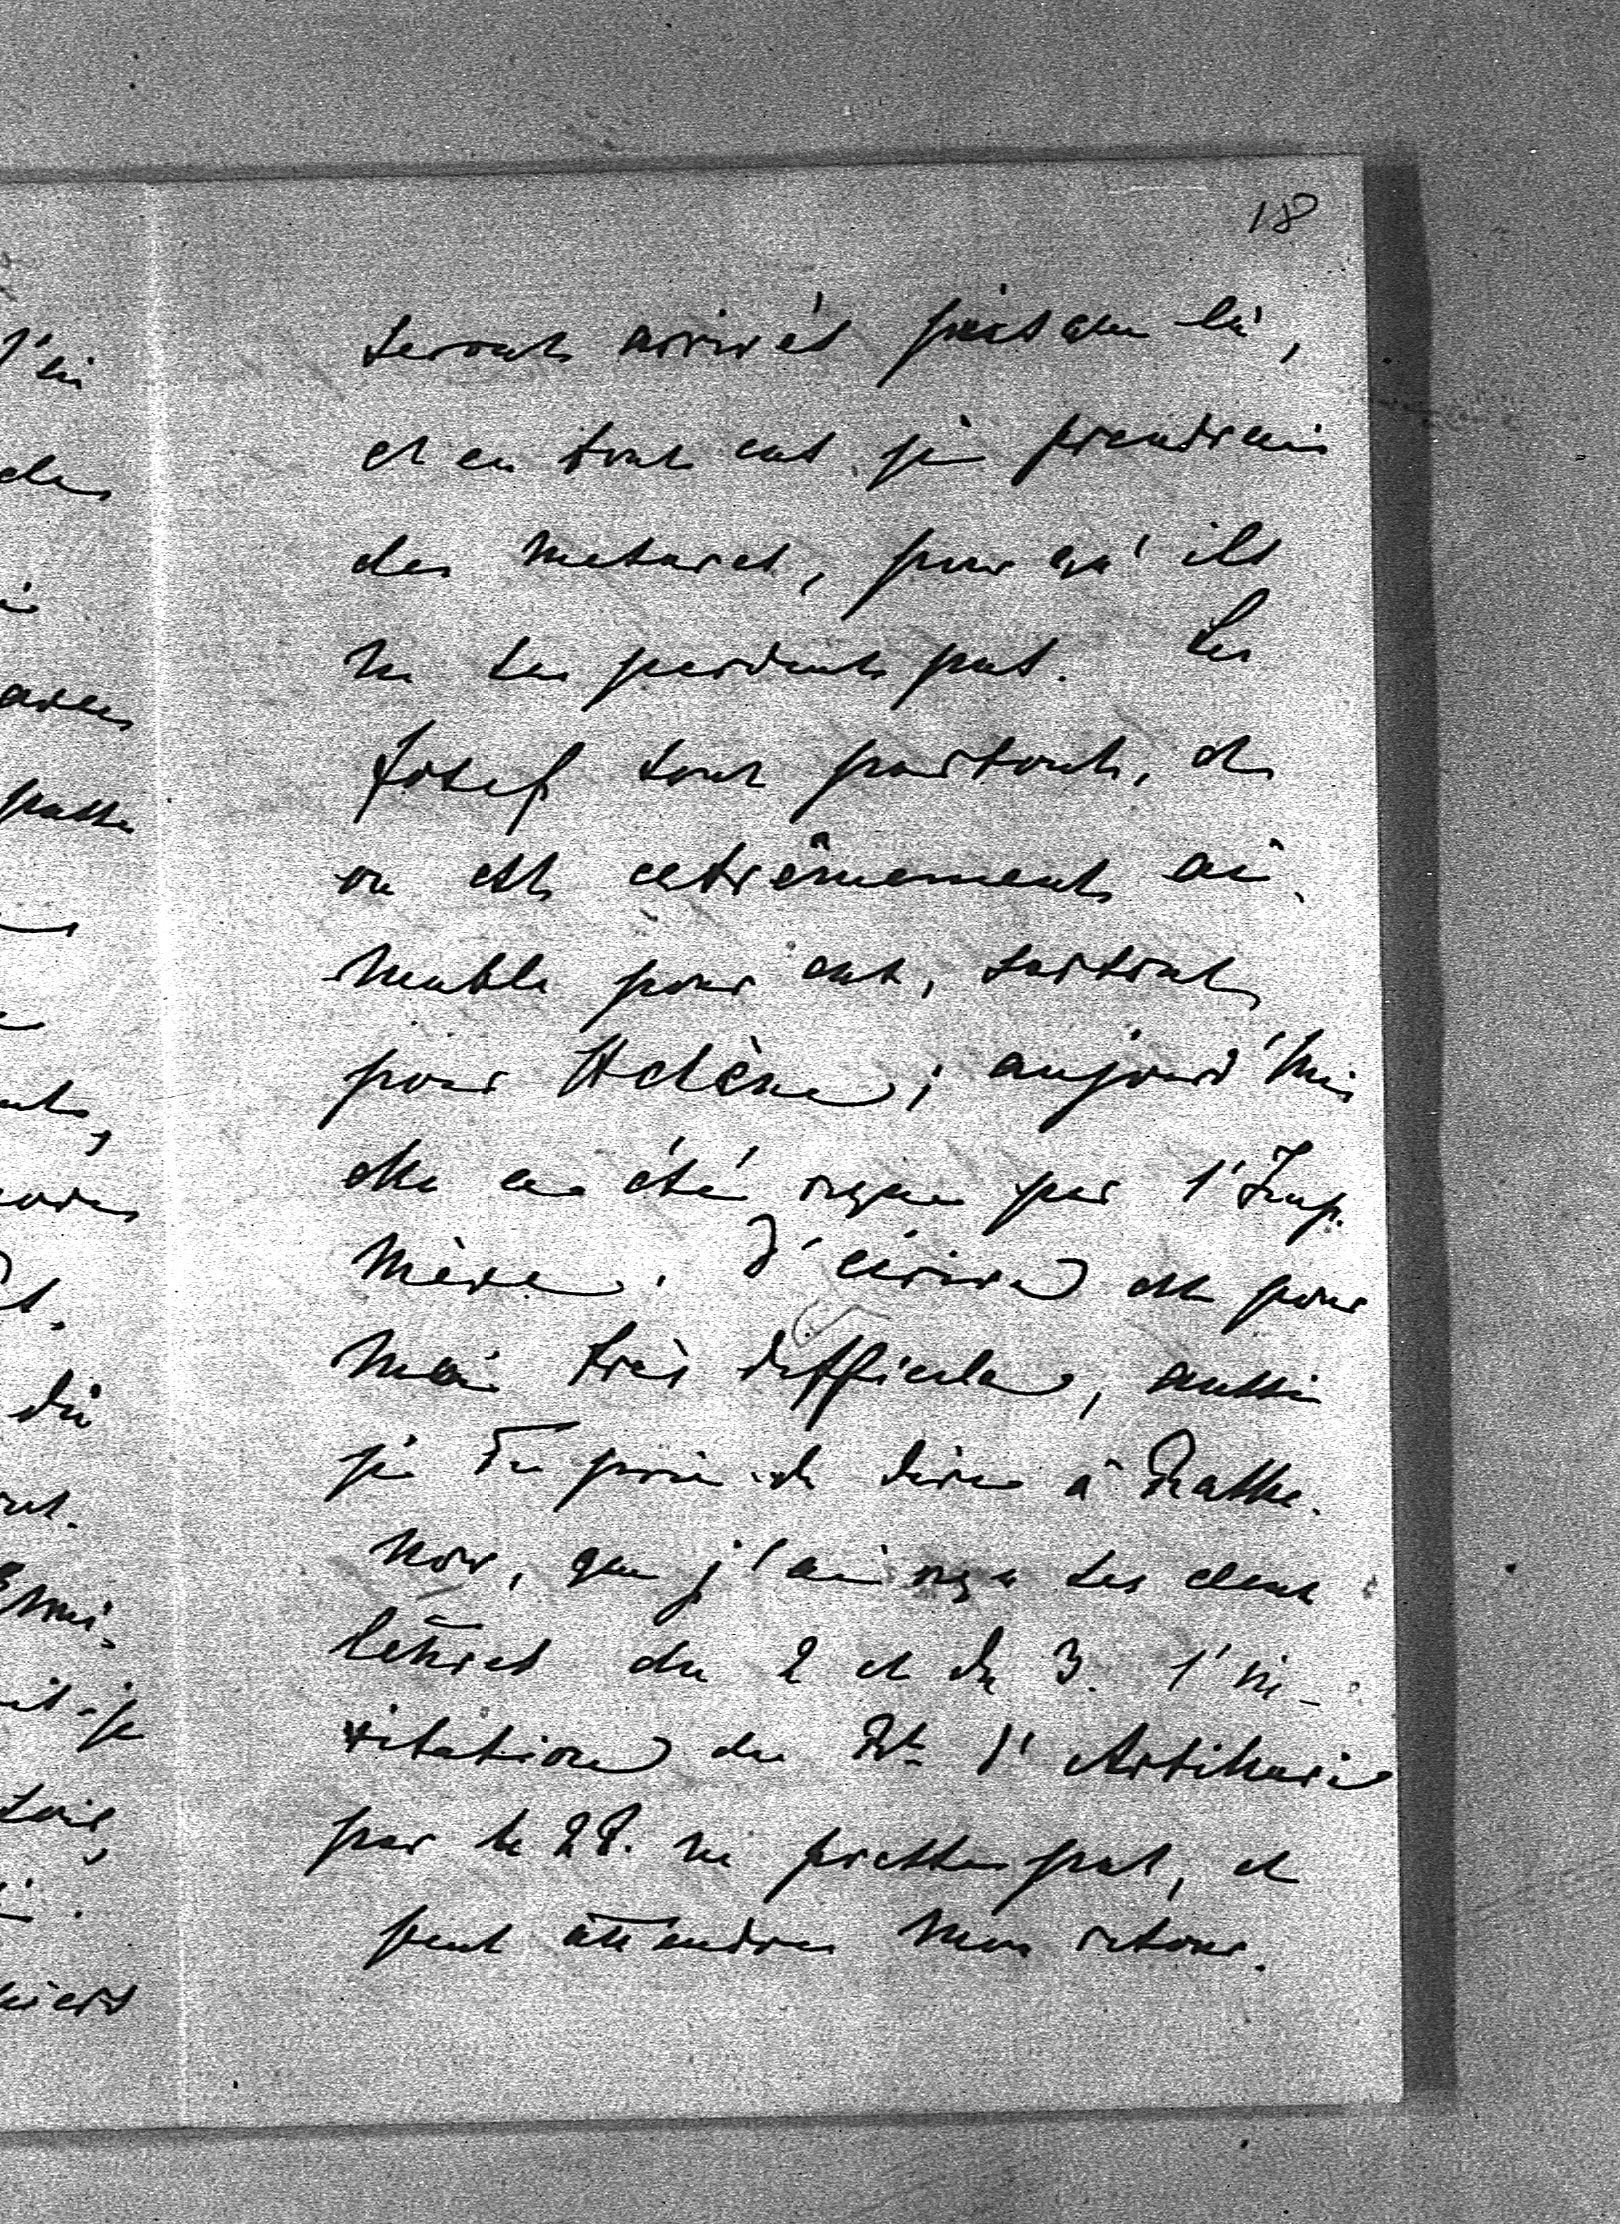 18
seront arrivés jusque là,
et en tout cas je prendrai
des mesures, pour qu'ils
ne se perdent pas. Les
Josef sont partout, et
on est extrêmement ai-
mable pour eux, surtout
pour Helène; aujourd'hui
elle a été reçue par l'Imp.
Mère. D'écrire est pour
moi très difficile, aussi
je Te prie de dire à Rathe-
now, que j'ai reçu ses deux
lettres du 2 et du 3. l'in-
vitation du Rt. d'Artillerie
par le 28. ne presse pas, et
peut attendre mon retour.